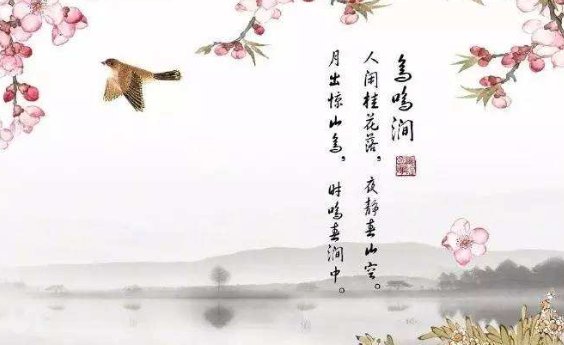 鸟鸣涧
人闲桂花落，夜静春山空。
月出惊山鸟，时鸣春涧中。